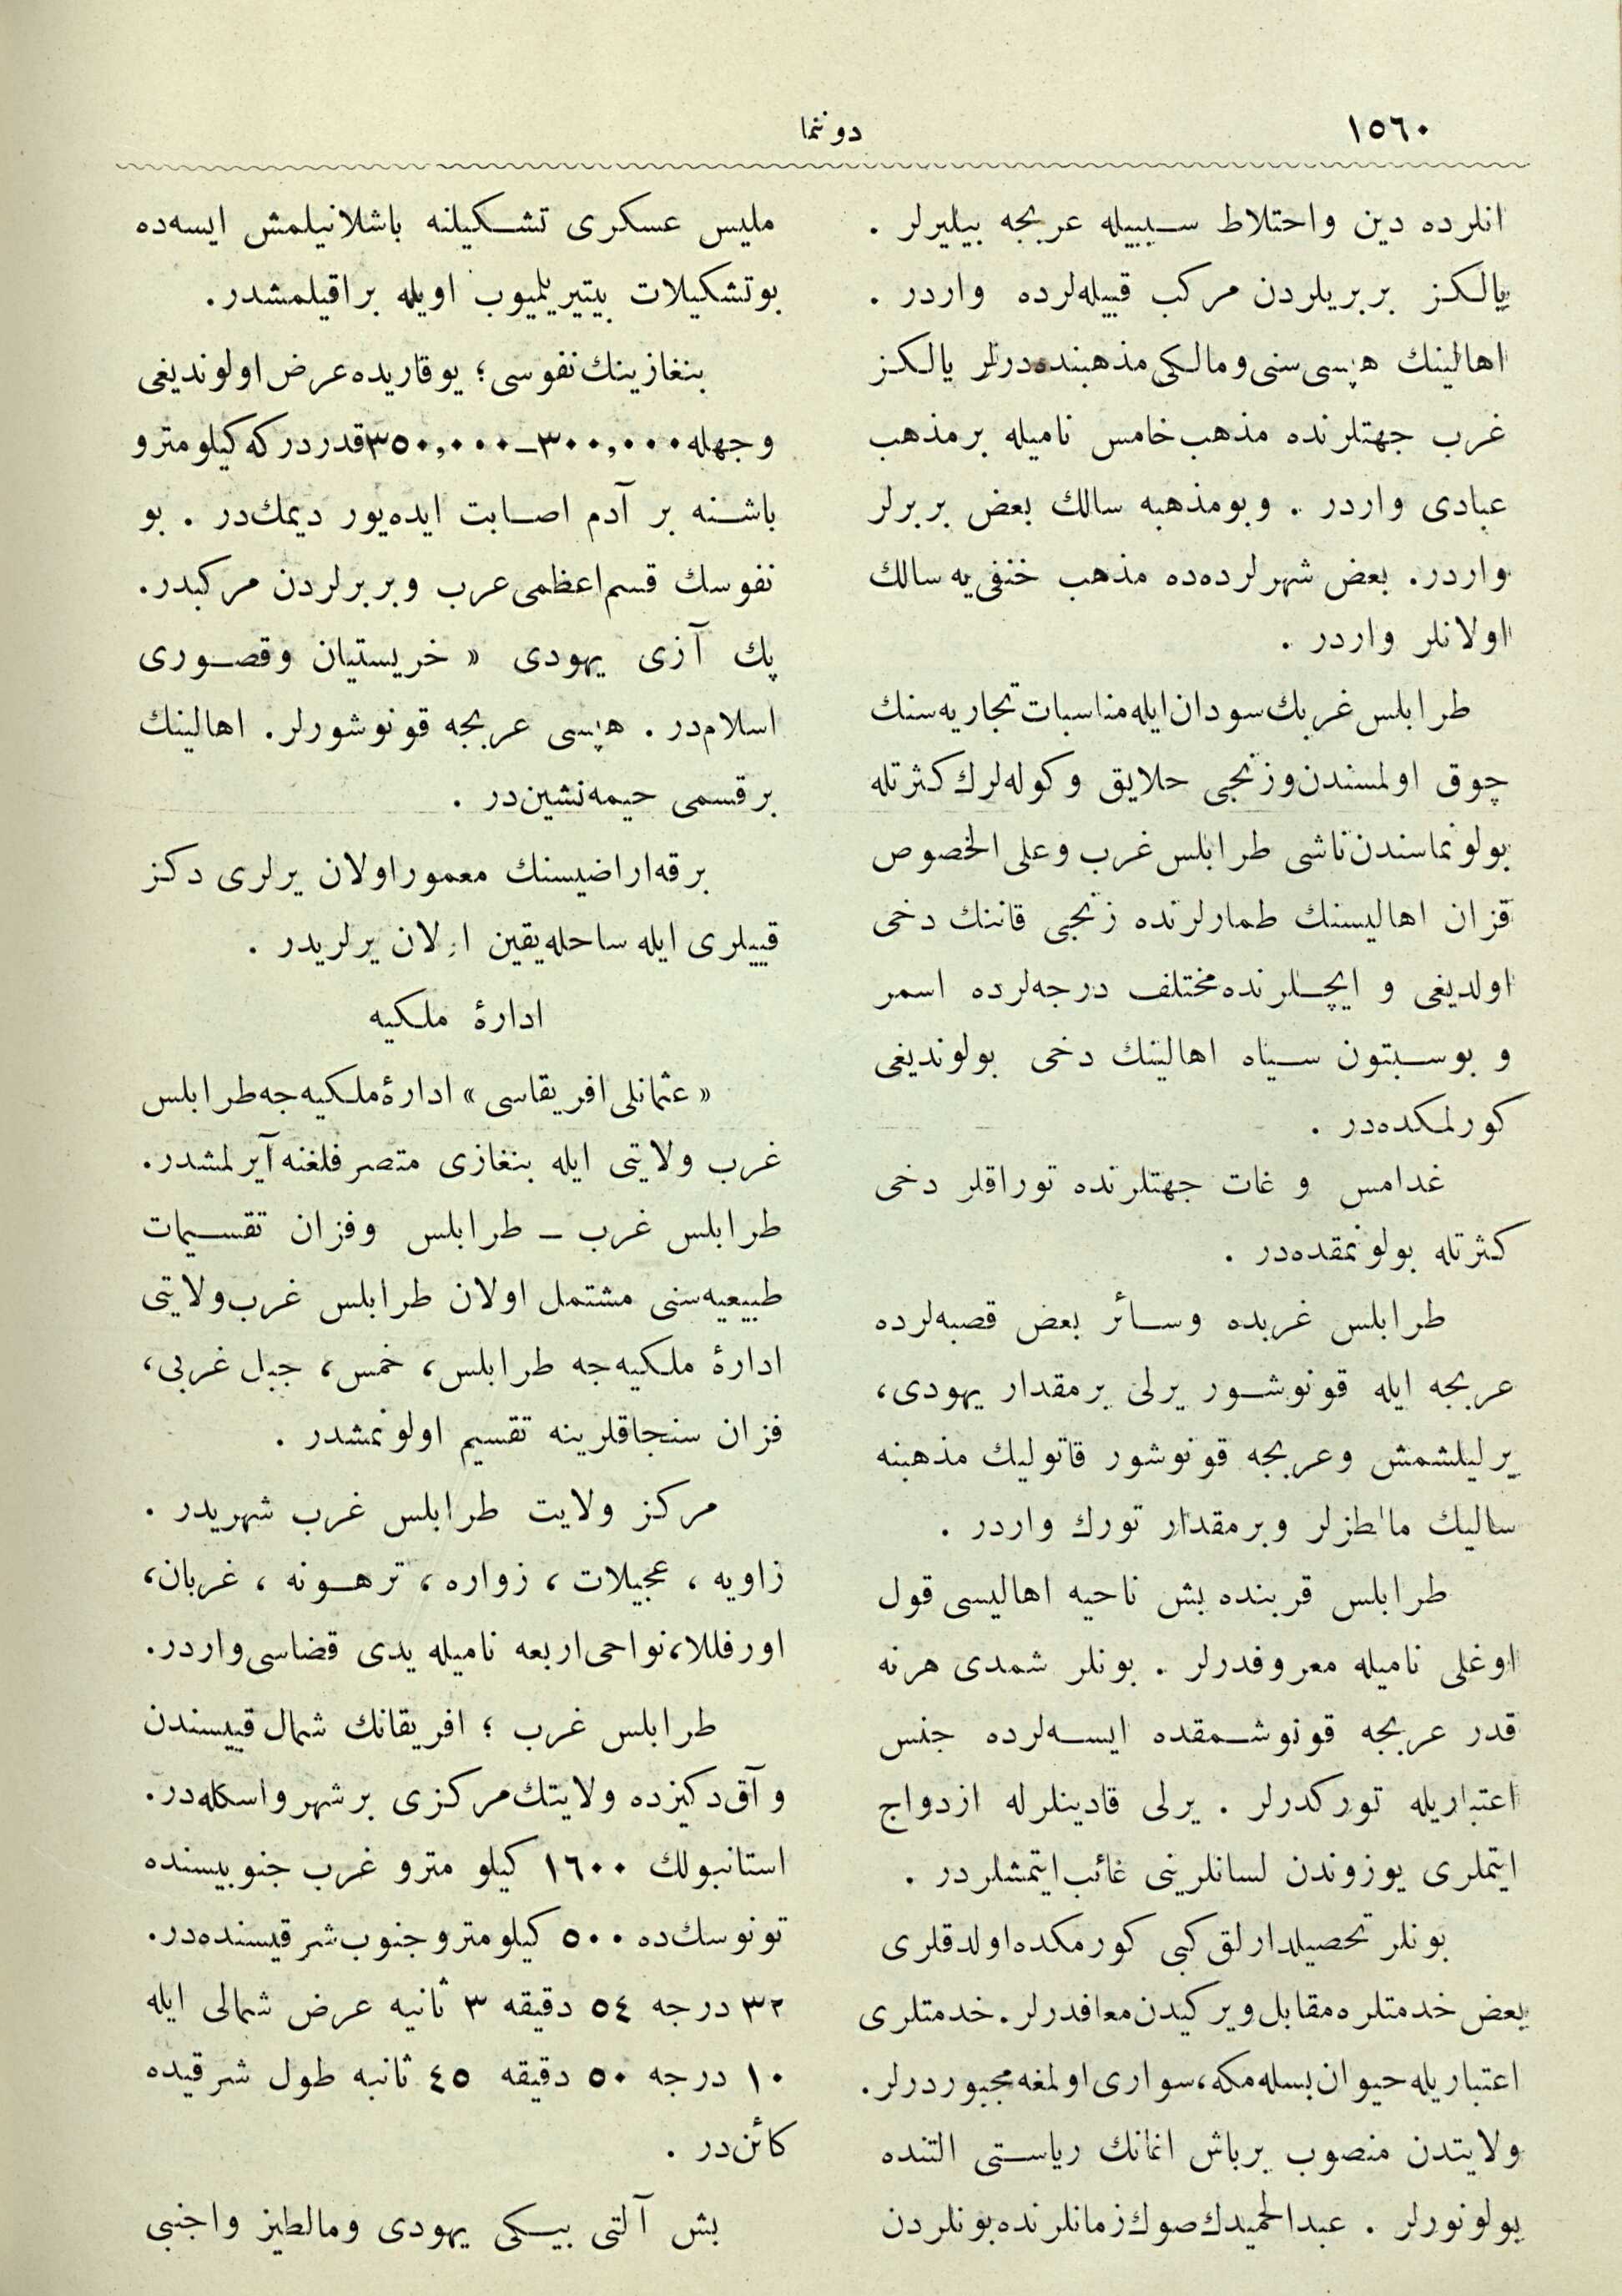 ١٥٦٠
دوننما
انلرده دین واختلاط سببیله عربجه بیلیرلر .
یالکز بربریلردن مرکب قبیله‌لرده واردر .
اهالینك هپسی سنی ومالکی مذهبنده‌درلر یالکز
غرب جهتلرنده مذهب خامس نامیله بر مذهب
عبادی واردر . وبومذهبه سالك بعض بربرلر
واردر. بعض شهرلرده‌ده مذهب حنفی‌یه سالك
اولانلر واردر .
طرابلس غربك سودان ایله مناسبات تجاریه‌سنك
چوق اولمسندن وزنجی حلایق وکوله‌لرك کثرتله
بولونماسندن ناشی طرابلس غرب وعلی الخصوص
قزان اهالیسنك طمارلرنده زنجی قاننك دخی
اولدیغی و ایچلرنده مختلف درجه‌لرده اسمر
و بوسبتون سیاه اهالینك دخی بولوندیغی
کورلمکده‌در .
غدامس و غات جهتلرنده توراقلر دخی
کثرتله بولونمقده‌در .
طرابلس غربده وسائر بعض قصبه‌لرده
عربجه ایله قونوشور یرلی برمقدار یهودی،
یرلیلشمش وعربجه قونوشور قاتولیك مذهبنه
سالیك مالطزلر وبرمقدار تورك واردر .
طرابلس قربنده بش ناحیه اهالیسی قول
اوغلی نامیله معروفدرلر . بونلر شمدی هرنه
قدر عربجه قونوشمقده ایسه‌لرده جنس
اعتباریله تورکدرلر . یرلی قادینلرله ازدواج
ایتملری یوزوندن لسانلرینی غائب ایتمشلردر .
بونلر تحصیلدارلق کبی کورمکده اولدقلری
بعض خدمتلره مقابل ویرکیدن معافدرلر. خدمتلری
اعتباریله حیوان بسله‌مکه، سواری اولمغه مجبوردرلر.
ولایتدن منصوب برباش اغانك ریاستی التنده
بولونورلر . عبدالحمیدك صوك زمانلرنده بونلردن
ملیس عسکری تشکیلنه باشلانیلمش ایسه‌ده
بوتشکیلات بیتیریلمیوب اویله براقیلمشدر.
بنغازینك نفوسی؛ یوقاریده عرض اولوندیغی
وجهله ٣٠٠,٠٠٠ــ٣٥٠,٠٠٠ قدردرکه کیلومترو
باشنه بر آدم اصابت ایده‌یور دیمك‌در . بو
نفوسك قسم اعظمی عرب وبربرلردن مرکبدر.
پك آزی یهودی « خریستیان وقصوری
اسلام‌در . هپسی عربجه قونوشورلر. اهالینك
برقسمی حیمه‌نشین‌در .
برقه اراضیسنك معمور اولان یرلری دکز
قییلری ایله ساحله یقین اولان یرلریدر .
ادارۀ ملکیه
« عثمانلی افریقاسی » ادارۀ ملکیه‌جه طرابلس
غرب ولایتی ایله بنغازی متصرفلغنه آیرلمشدر.
طرابلس غرب ــ طرابلس وفزان تقسیمات
طبیعیه‌سنی مشتمل اولان طرابلس غرب ولایتی
ادارۀ ملکیه‌جه طرابلس، خمس، جبل غربی،
فزان سنجاقلرینه تقسیم اولونمشدر .
مرکز ولایت طرابلس غرب شهریدر .
زاویه ، عجیلات ، زواره ، ترهونه ، غریان،
اورفللا، نواحی اربعه نامیله یدی قضاسی واردر.
طرابلس غرب ؛ افریقانك شمال قییسندن
وآق‌دکیزده ولایتك مرکزی برشهر واسکله‌در.
استانبولك ١٦٠٠ کیلو مترو غرب جنوبیسنده
تونوسك‌ده ٥٠٠ کیلومترو جنوب شرقیسنده‌در.
٣٢ درجه ٥٤ دقیقه ٣ ثانیه عرض شمالی ایله
١٠ درجه ٥٠ دقیقه ٤٥ ثانیه طول شرقیده
کائن‌در .
بش آلتی بیکی یهودی ومالطیز واجنبی